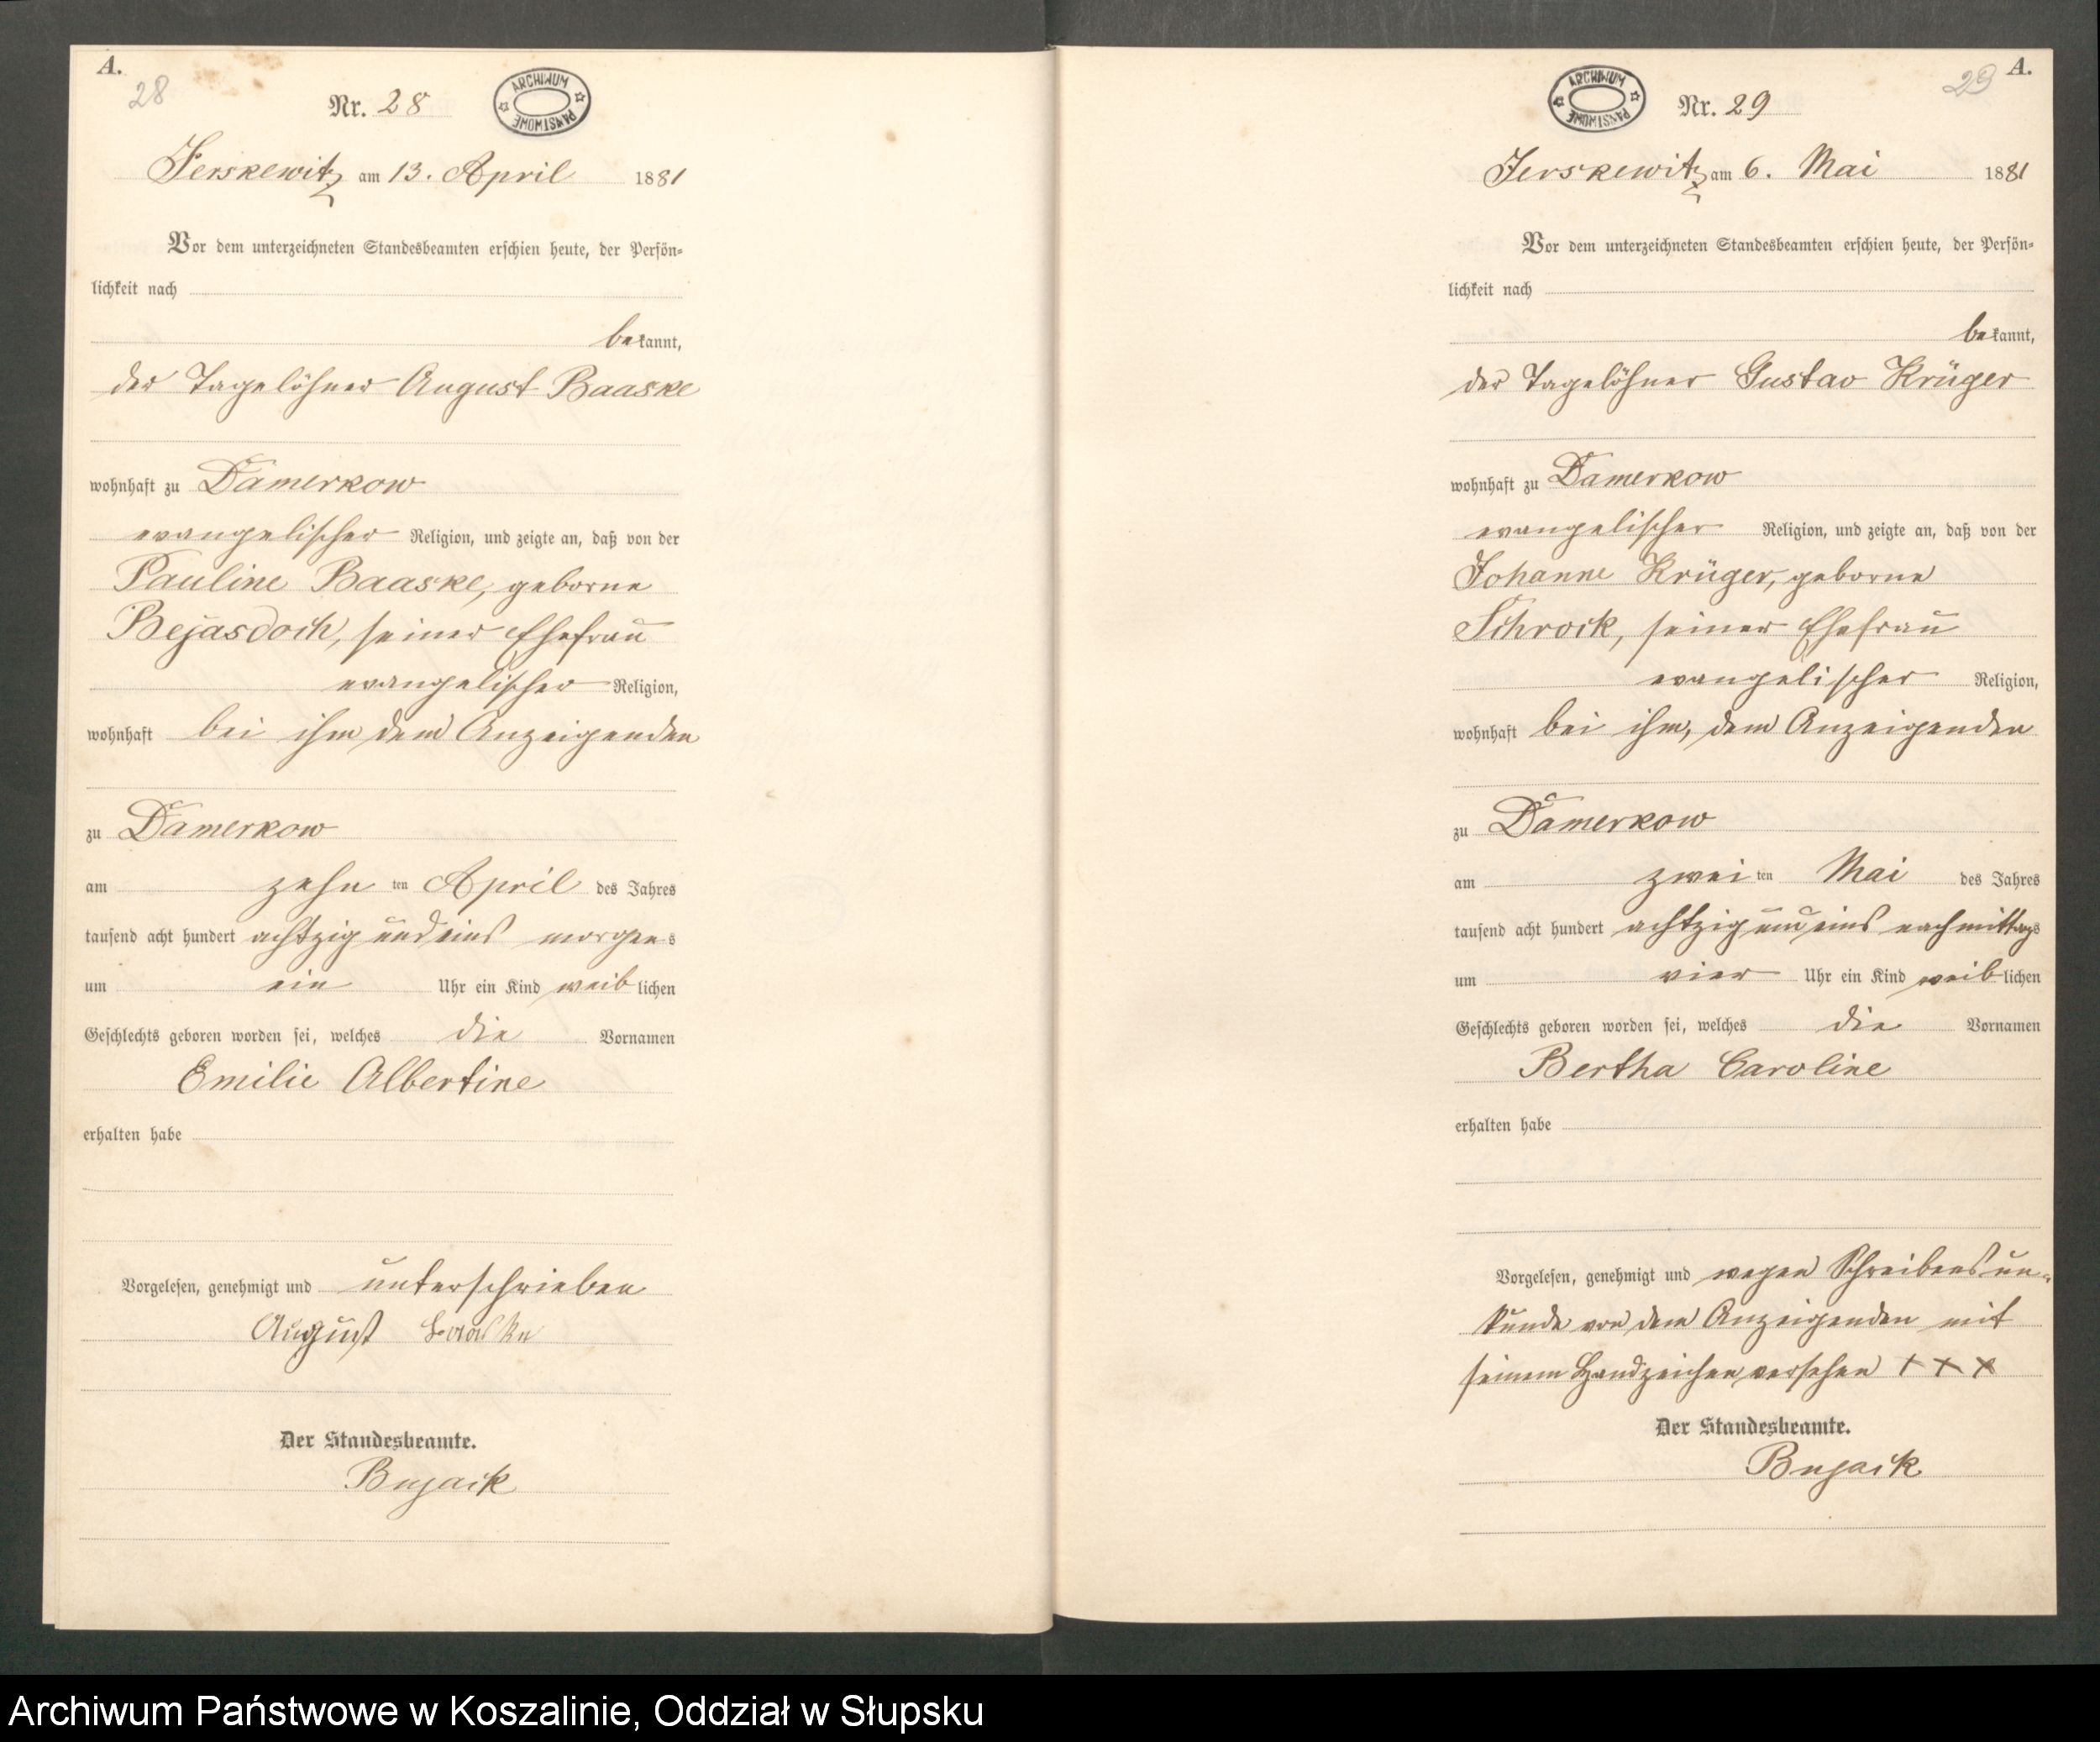 A.
28
Nr. 28
ARCHIWUM PAŃSTWOWE
Jerskewitz am 13. April 1881
Vor dem unterzeichneten Standesbeamten erschien heute, der Persön-
lichkeit nach
bekannt,
der Tagelöhner August Baaske
wohnhaft zu Damerkow
evangelischer Religion, und zeigte an, daß von der
Pauline Baaske, geborne
Bejasdoch, seiner Ehefrau
evangelischer Religion,
wohnhaft bei ihm dem Anzeigenden
zu Damerkow
am zehn ten April des Jahres
tausend acht hundert achtzig und eins morgens
um ein Uhr ein Kind weiblichen
Geschlechts geboren worden sei, welches die Vornamen
Emilie Albertine
erhalten habe
Vorgelesen, genehmigt und unterschrieben
August Baaske
Der Standesbeamte.
Bujack
A.
29
ARCHIWUM PAŃSTWOWE
Nr. 29
Jerskewitz am 6. Mai 1881
Vor dem unterzeichneten Standesbeamten erschien heute, der Persön-
lichkeit nach
bekannt,
der Tagelöhner Gustav Krüger
wohnhaft zu Damerkow
evangelischer Religion, und zeigte an, daß von der
Johanne Krüger, geborne
Schrock, seiner Ehefrau
evangelischer Religion,
wohnhaft bei ihm, dem Anzeigenden
zu Damerkow
am zwei ten Mai des Jahres
tausend acht hundert achtzig und eins nachmittags
um vier Uhr ein Kind weiblichen
Geschlechts geboren worden sei, welches die Vornamen
Bertha Caroline
erhalten habe
Vorgelesen, genehmigt und wegen Schreibensun-
kunde von dem Anzeigenden mit
seinem Handzeichen versehen + + +
Der Standesbeamte.
Bujack
Archiwum Państwowe w Koszalinie, Oddział w Słupsku